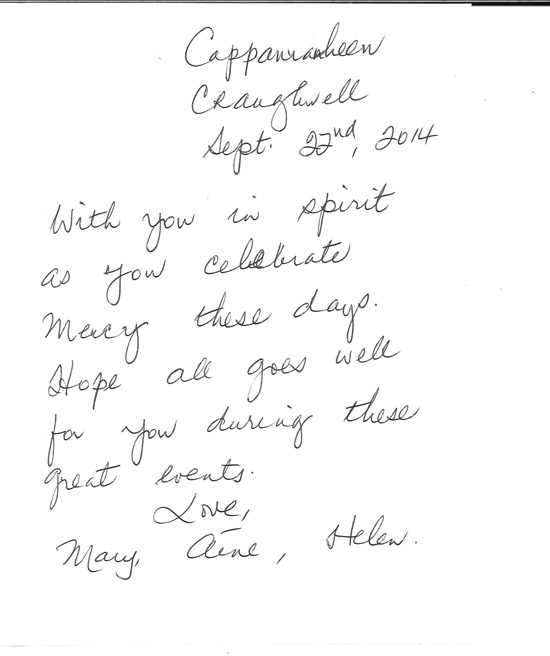 Cappanraheen
Craughwell
Sept. 22nd, 2014
With you in spirit
as you celebrate
Mercy these days.
Hope all goes well
for you during these
great events.
Love,
Mary, Áine, Helen.